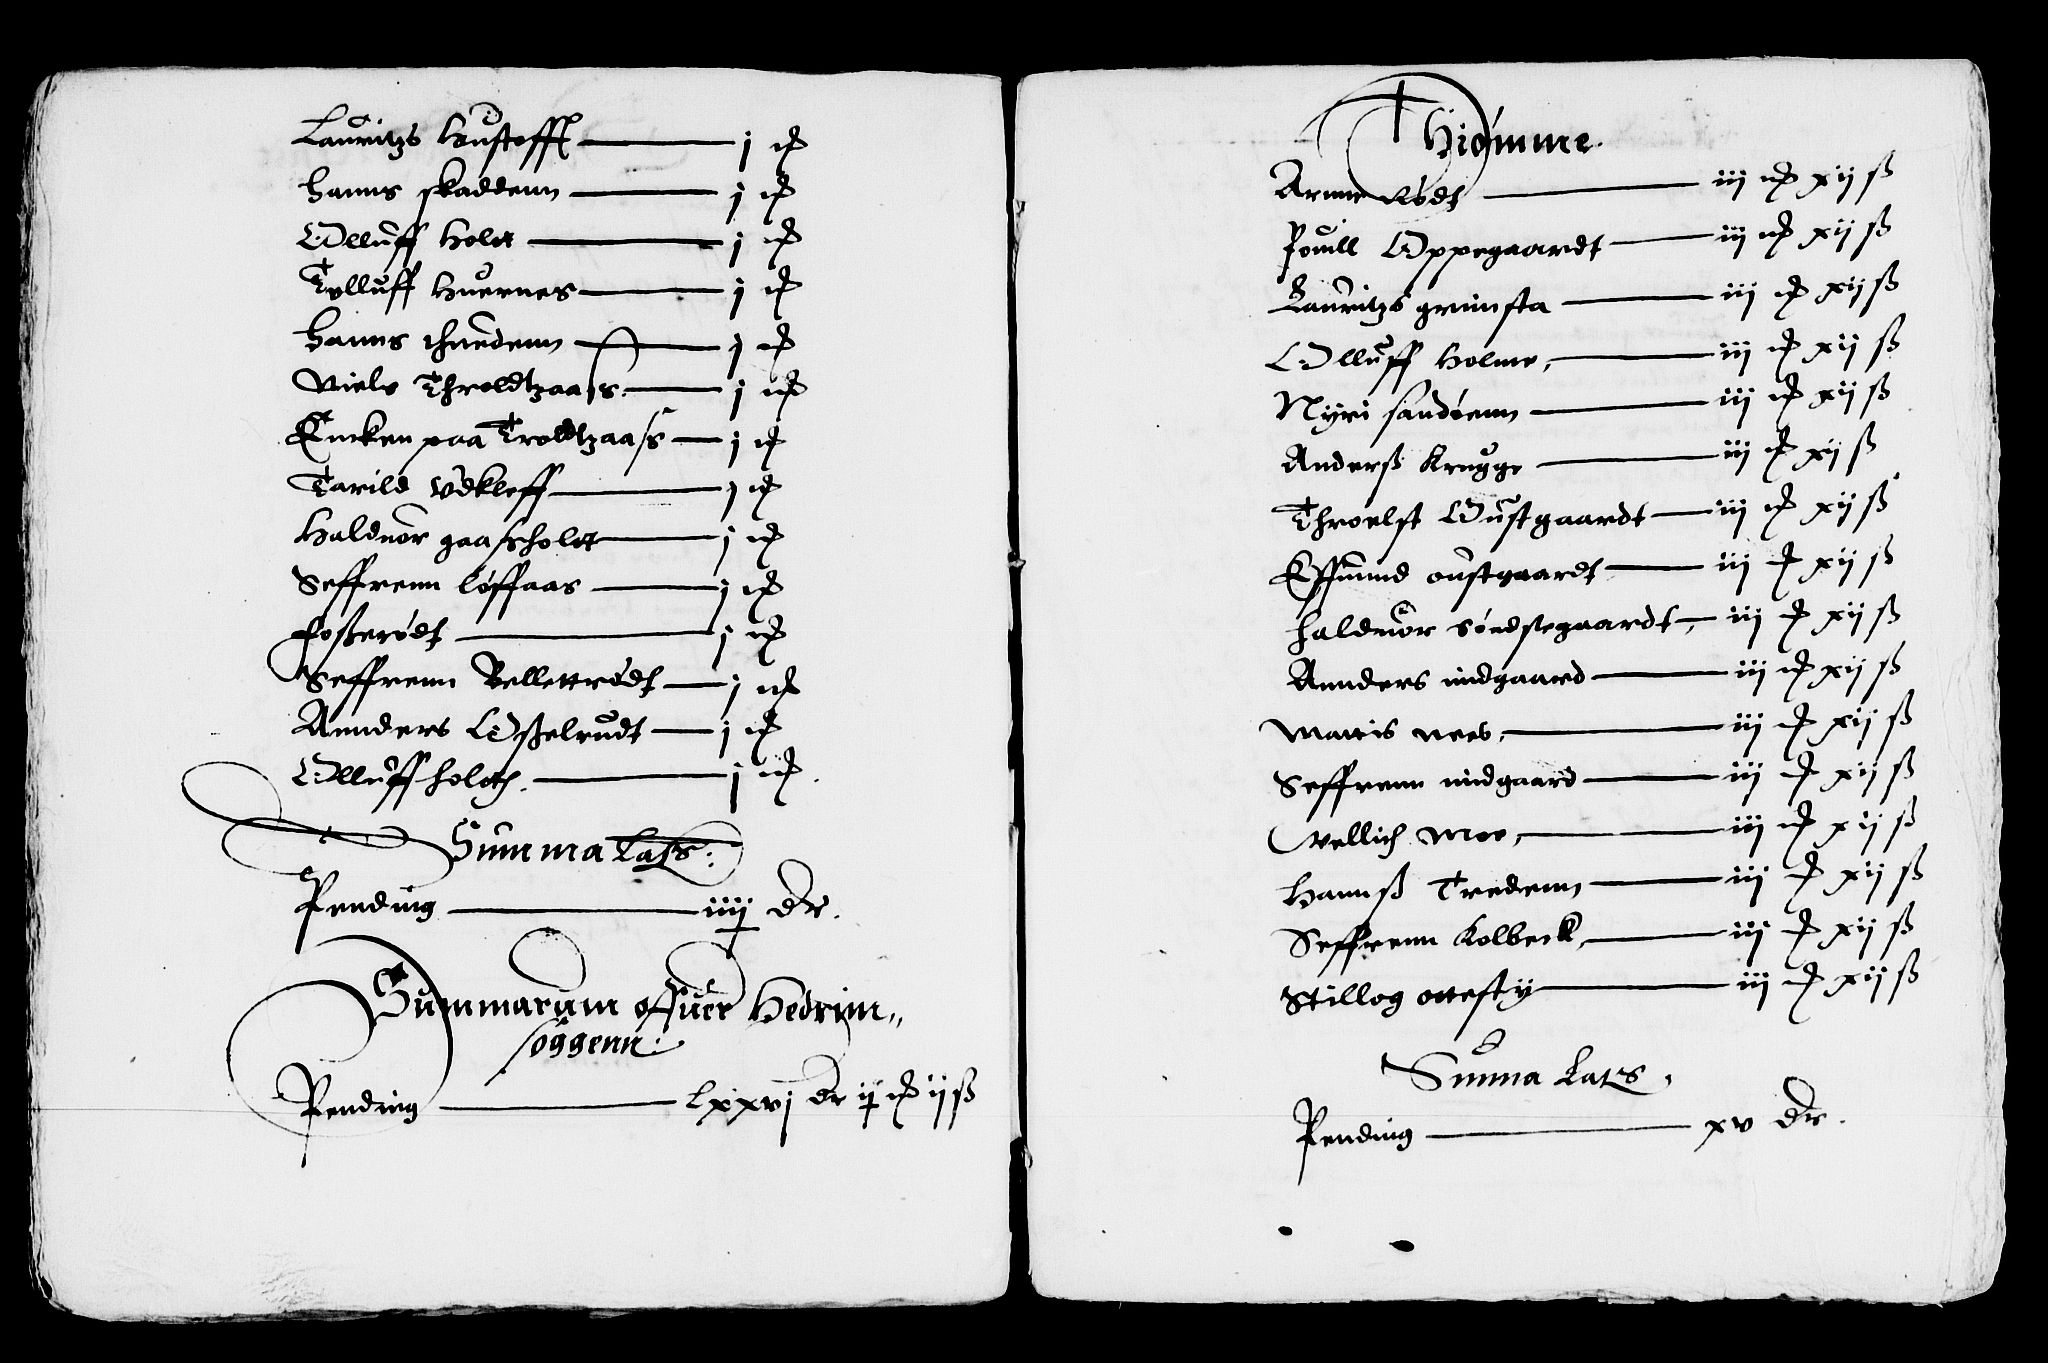 Lauritzs Hustoffl j ort
Hanns skaddenn j ort
Olluff Holtt j ort
Tolluff Huernes j ort
Hanns j ort
Niels Throldtzaass j ort
Encken paa Troldtzaass j ort
Tarild Vdkleff j ort
Halduor gaassholtt j ort
Seffrenn Løffaas j ort
Foßerødt j ort
Seffrenn Bellettrødt j ort
Annders Oßelrudt j ort
Olluff holth j ort.
Summa Lats:
Pending iiij dr.
Summarum offuer Hedrim„
søggenn:
Pending Lxxvj dr ij ort ij ß
Thiømme
Arnne Rødt iij ort xij ß
Pouill Oppegaardt iij ort xij ß
Lauritzs grimsta iij ort xij ß
Olluff Holme, iij ort xij ß
Nyri sandøenn iij ort xij ß
Anderß Krugge iij ort xij ß
Throelst Oustgaardt iij ort xij ß
Effuind oustgaardt iij ort xij ß
Halduor søndstegaardt, iij ort xij ß
Annders midgaard iij ort xij ß
Mattis nees, iij ort xij ß
Seffrenn midgaard iij ort xij ß
Vellich Moe, iij ort xij ß
Hannß Tredenn iij ort xij ß
Seffrenn Kolbeck, iij ort xij ß
Stillog ottesty iij ort xij ß
Suma Lats,
Pending xv dr.